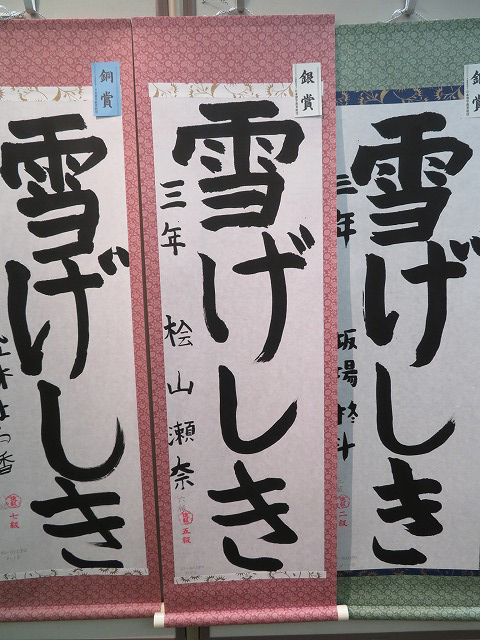 銀賞
雪げしき
三年
坂場柊斗
二級
銀賞
雪げしき
三年 桧山瀬奈
五級
銅賞
雪げしき
七級